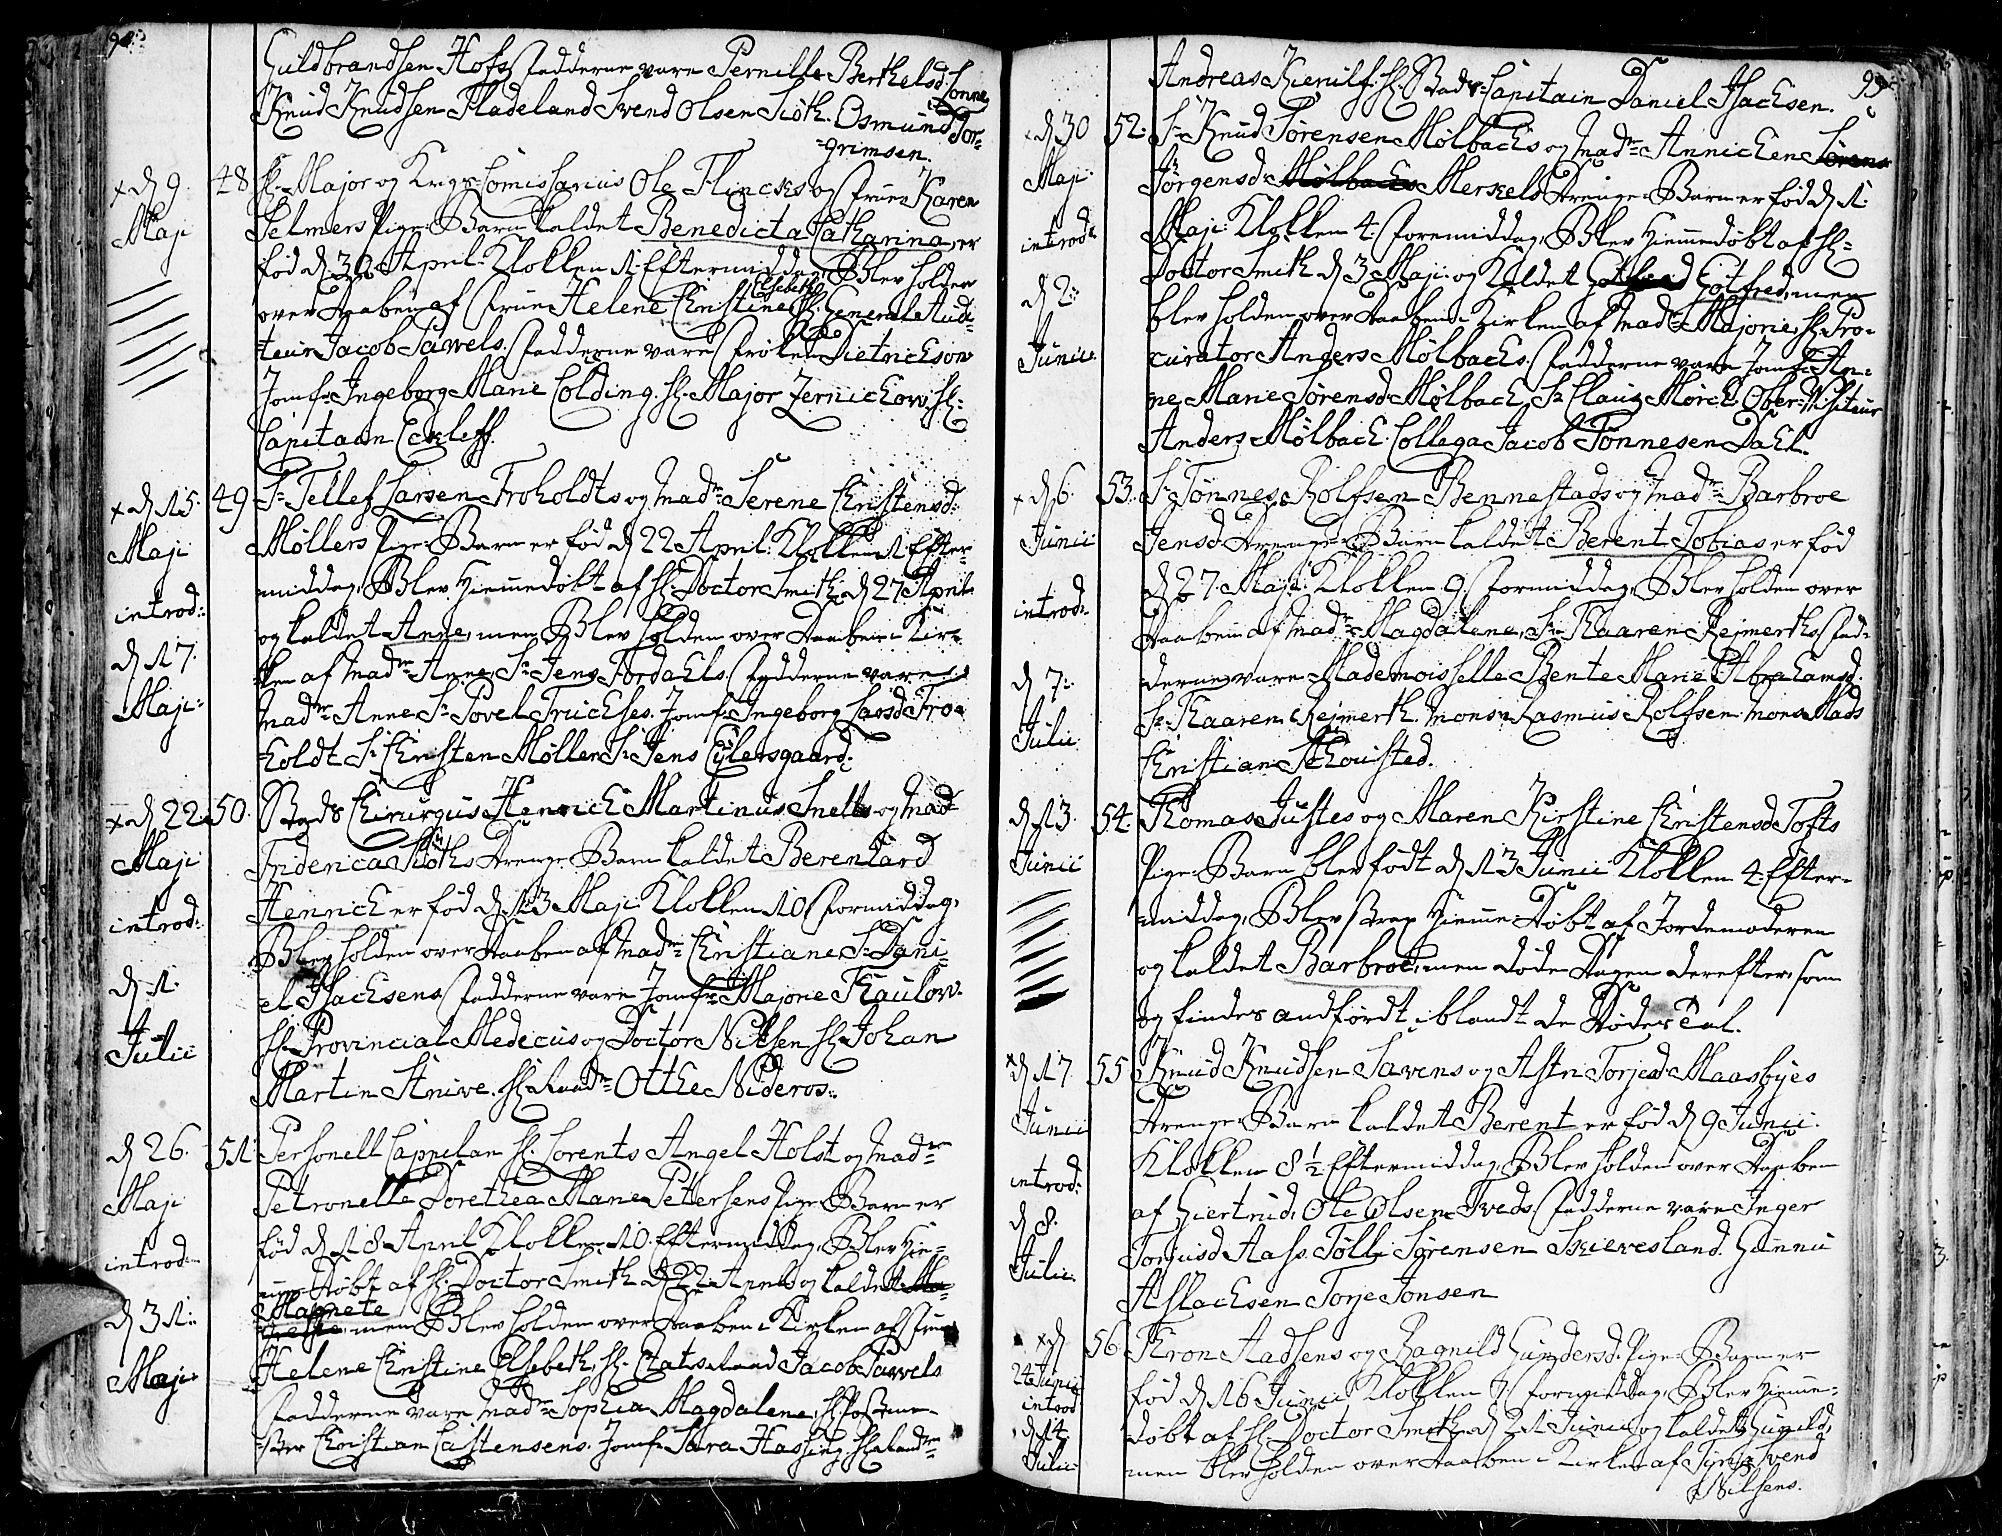 94.
Guldbrandsen Hofs, Fadderne vare Pernille Berthelsd. Tønne
Knud Knudsen Fladeland Svend Olsen Siøth. Osmund Tor-
-grimsen.
x d 9. Maji
48 Hr. Major og Krigs Comissarius Ole Flincks og Frue Karen
Selmers Pige-Barn kaldet Benedicta Catharina, er
fød d 30 April. Klokken 1. Eftermiddag, Blev holden
over Daaben af Frue Helene Christine Elsebeth, Hr. General-Audi-
teur Jacob Pawels. Fadderne vare Frøken Dietrichson
Jomfr. Ingeborg Marie Colding. Hr. Major Zernichow, Hr.
Capitain Eckleff.
x d 15. Maji introd: d 17. Maji:
49 Sr. Tellef Larsen Froholdts og Madme Serene Christensd.
Møllers Pige-Barn er fød d 22 April. Klokken 1. Efter-
middag, Blev Hiemmedøbt af Hr. Doctor Smith d 27 April
og kaldet Anne, men Blev holden over Daaben i Kir-
ken af Madme Anne, Sr. Jens Tordahls. Fadderne vare
Madme Anne Sr. Povel Truelses. Jomfr. Ingeborg Larsd. Fro-
holdt Sr. Christen Møller Sr. Jens Eylersgaard.
x d 22. Maji introd: d 1. Julii
50. Stads Chirurgus Henrich Martinus Snells og Madme
Friderica Siøths Drenge Barn kaldet Berenhard
Henrich er fød d 13 Maji Klokken 10 Formiddag,
Blev holden over Daaben af Madme Christiane Sr. Dani-
el Isachsens, Fadderne vare Jomfr. Majone Thaulow.
Hr. Provincial Medicus og Doctor Nilsen Hr. Johan
Martin Stnive. Hr. Raadm. Otthe Nideros.
d 26. Maji introd: d 31: Maji
51. Personell Cappelan Hr. Lorents Angel Holst og Madme
Petronelle Dorethea Marie Petersens Pige-Barn er
fød d 18 April Klokken 10. Eftermiddag, Blev Hie-
mme Døbt af Hr. Doctor Smith d 22 April og kaldet
Magrete men Blev holden over Daaben i Kirken af Frue
Helene Christine Elsebeth, Hr. Etatsraad Jacob Pawels
Fadderne vare Madme Sophia Magdalene, Hr. Postme-
ster Christian Castensens. Jomfr. Sara Hassing. Hr. Raadm.
95
Andreas Kierulf. Hr. Stads-Capitain Daniel Isachsen.
x d 30 Maji introd: d 2: Junii
52. Sr. Knud Sørensen Mølbachs og Madme Annichen Sørens
Jørgensd. Mølbachs Merseld Drenge-Barn er fød d 1.
Maji. Klokken 4. Foremiddag, Blev Hiemmedøbt af Hr.
Doctor Smith d 3 Maji og Kaldet Gotfred, men
blev holden over Daaben i Kirken af Madme Majorie, Hr. Pro-
curator Anders Mølbachs. Fadderne vare Jomfr. An-
ne Marie Sørensd. Mølbach, Sr. Claus Mørch Ober-Visiteur
Anders Mølbach. Collega Jacob Tønnesen Dahl.
x d 6. Junii introd: d 7: Julii
53. Sr. Tønnes Rolfsen Bennestads og Madme Barbroe
Jensd. Drenge-Barn kaldet Berent Tobias er fød
d 27. Maji. Klokken 9. Formiddag, Blev holden over
Daaben af Madme Magdalene, Sr. Kaaren Rejmerths, Fad-
derne vare Mademoiselle Bente Marie Abrahamsd.
Sr. Kaaren Rejmerth. Monsr. Rasmus Rolfsen. Monsr. Mads
Christian Schousted.
d 13. Junii
54. Thomas Justes og Maren Kirstine Christensd. Tofts
Pige-Barn blev født d 13 Junii Klokken 4. Efter-
middag, Blev strax Hiemme Døbt af Jordemoderen
og kaldet Barbroe, men døde Dagen derefter, som
og findes andførdt iblandt de Dødes Tal.
x d 17 Junii introd: d 8. Julii
55 Knud Knudsen Savens og Astri Torjesd. Maasbyes
Drenge-Barn kaldet Berent er fød d 9 Junii.
Klokken 8 ½ Eftermiddag, Blev holden over Daaben
af Giertrud, Ole Olsen Tveds. Fadderne vare Inger
Torjusd. Aass. Tølle Sørensen Skieresland. Gunnu
Aslachsen Torje Jonsen
x d 24 Junii introd d 14 Julii
56. Thron Aadsens og Ragnild Gundersd. Pige-Barn er
fød d 16 Junii Klokken 7 Formiddag, Blev Hiemme-
døbt af Hr. Doctor Smith d 21 Junii og kaldet Gunild,
men blev holden over Daaben i Kirken af Siri, Svend
Nilsens.